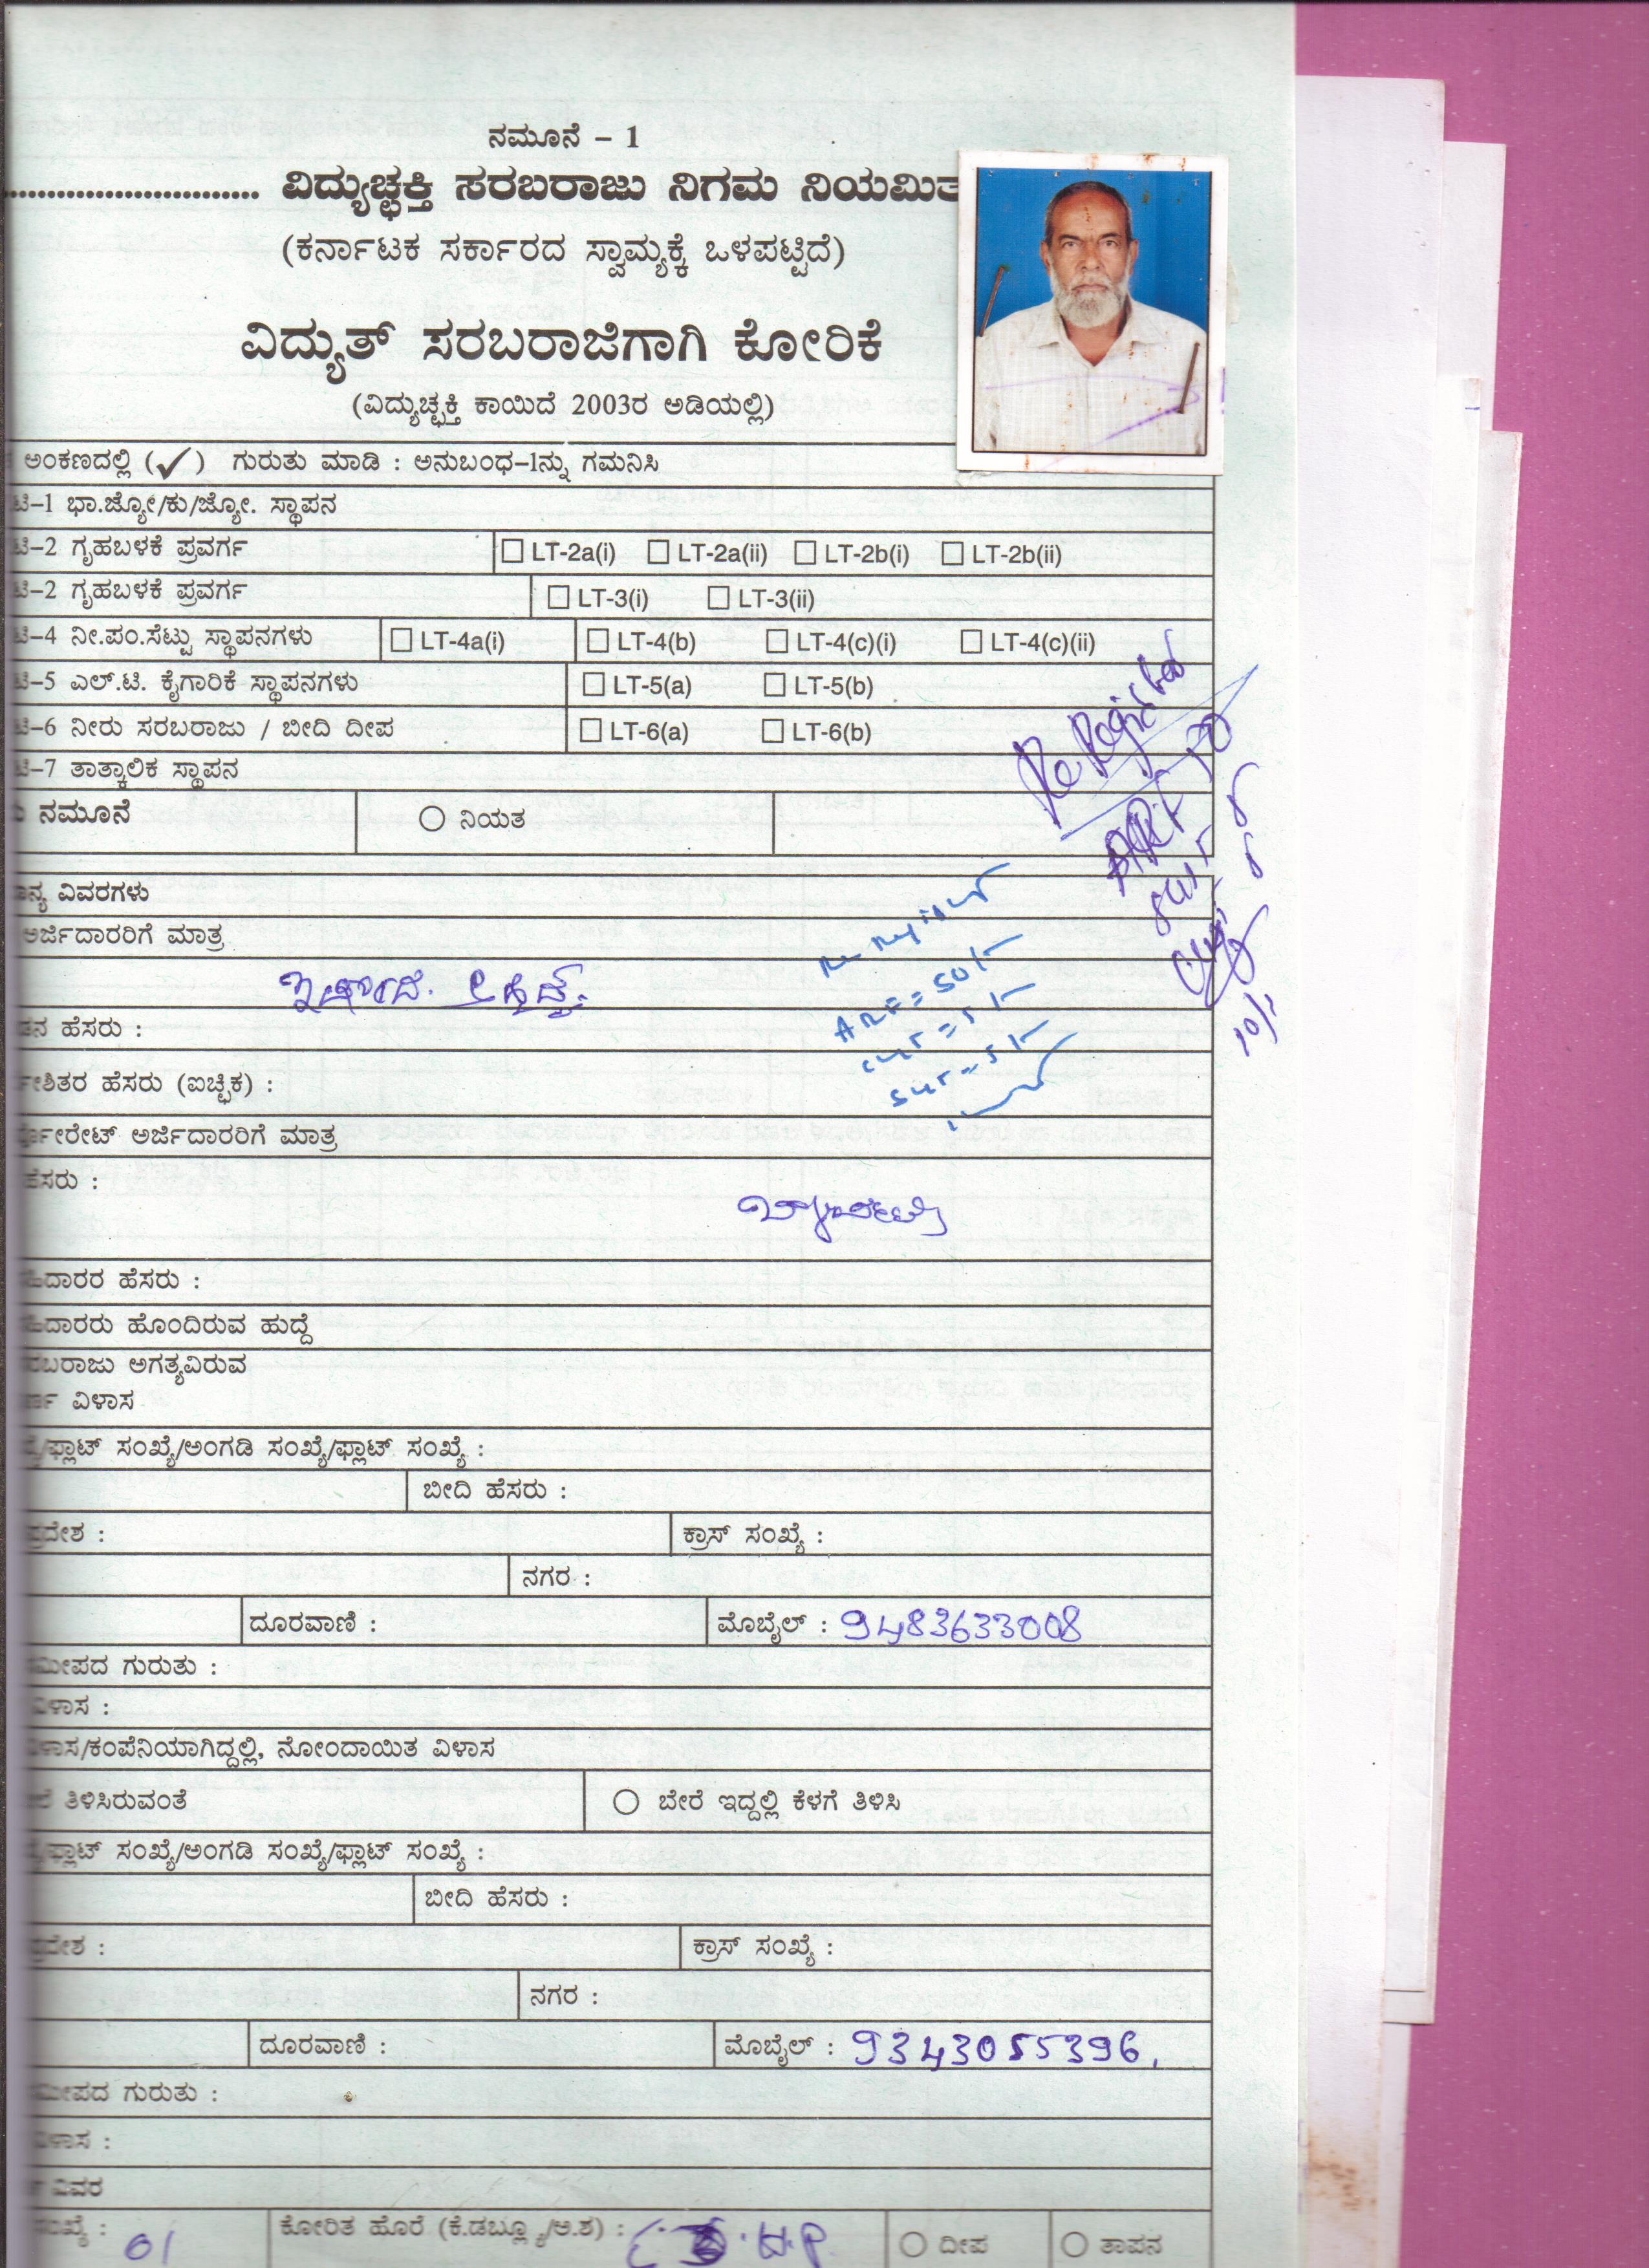 ನಮೂನೆ – 1
............................ ವಿದ್ಯುಚ್ಛಕ್ತಿ ಸರಬರಾಜು ನಿಗಮ ನಿಯಮಿತ
(ಕರ್ನಾಟಕ ಸರ್ಕಾರದ ಸ್ವಾಮ್ಯಕ್ಕೆ ಒಳಪಟ್ಟಿದೆ)
ವಿದ್ಯುತ್ ಸರಬರಾಜಿಗಾಗಿ ಕೋರಿಕೆ
(ವಿದ್ಯುಚ್ಛಕ್ತಿ ಕಾಯಿದೆ 2003ರ ಅಡಿಯಲ್ಲಿ)
ಅಂಕಣದಲ್ಲಿ (✓) ಗುರುತು ಮಾಡಿ : ಅನುಬಂಧ–1ನ್ನು ಗಮನಿಸಿ
ಟಿ–1 ಭಾ.ಜ್ಯೋ/ಕು/ಜ್ಯೋ. ಸ್ಥಾಪನ
ಟಿ–2 ಗೃಹಬಳಕೆ ಪ್ರವರ್ಗ □ LT-2a(i) □ LT-2a(ii) □ LT-2b(i) □ LT-2b(ii)
ಟಿ–2 ಗೃಹಬಳಕೆ ಪ್ರವರ್ಗ □ LT-3(i) □ LT-3(ii)
ಟಿ–4 ನೀ.ಪಂ.ಸೆಟ್ಟು ಸ್ಥಾಪನಗಳು □ LT-4a(i) □ LT-4(b) □ LT-4(c)(i) □ LT-4(c)(ii)
ಟಿ–5 ಎಲ್.ಟಿ. ಕೈಗಾರಿಕೆ ಸ್ಥಾಪನಗಳು □ LT-5(a) □ LT-5(b)
ಟಿ–6 ನೀರು ಸರಬರಾಜು / ಬೀದಿ ದೀಪ □ LT-6(a) □ LT-6(b)
ಟಿ–7 ತಾತ್ಕಾಲಿಕ ಸ್ಥಾಪನ
ನಮೂನೆ ○ ನಿಯತ
Re Registed
ವಿವರಗಳು
ಅರ್ಜಿದಾರರಿಗೆ ಮಾತ್ರ
ARF = 50/-
= 5/-
sur = 5/-
10/-
ಹೆಸರು :
ಹೆಸರು (ಐಚ್ಛಿಕ) :
ಅರ್ಜಿದಾರರಿಗೆ ಮಾತ್ರ
ಹೆಸರು :
ಹೆಸರು :
ಹೊಂದಿರುವ ಹುದ್ದೆ
ಅಗತ್ಯವಿರುವ
ವಿಳಾಸ
/ಫ್ಲಾಟ್ ಸಂಖ್ಯೆ/ಅಂಗಡಿ ಸಂಖ್ಯೆ/ಫ್ಲಾಟ್ ಸಂಖ್ಯೆ :
ಬೀದಿ ಹೆಸರು :
ಪ್ರದೇಶ : ಕ್ರಾಸ್ ಸಂಖ್ಯೆ :
ನಗರ :
ದೂರವಾಣಿ : ಮೊಬೈಲ್ : 9483633008
ಗುರುತು :
ವಿಳಾಸ :
/ಕಂಪೆನಿಯಾಗಿದ್ದಲ್ಲಿ, ನೋಂದಾಯಿತ ವಿಳಾಸ
ತಿಳಿಸಿರುವಂತೆ ○ ಬೇರೆ ಇದ್ದಲ್ಲಿ ಕೆಳಗೆ ತಿಳಿಸಿ
/ಫ್ಲಾಟ್ ಸಂಖ್ಯೆ/ಅಂಗಡಿ ಸಂಖ್ಯೆ/ಫ್ಲಾಟ್ ಸಂಖ್ಯೆ :
ಬೀದಿ ಹೆಸರು :
ಪ್ರದೇಶ : ಕ್ರಾಸ್ ಸಂಖ್ಯೆ :
ನಗರ :
ದೂರವಾಣಿ : ಮೊಬೈಲ್ : 9343055396.
ಗುರುತು :
ವಿಳಾಸ :
ವಿವರ
ಸಂಖ್ಯೆ : 01 ಕೋರಿತ ಹೊರೆ (ಕೆ.ಡಬ್ಲ್ಯೂ/ಅ.ಶ) : H.P. ○ ದೀಪ ○ ತಾಪನ